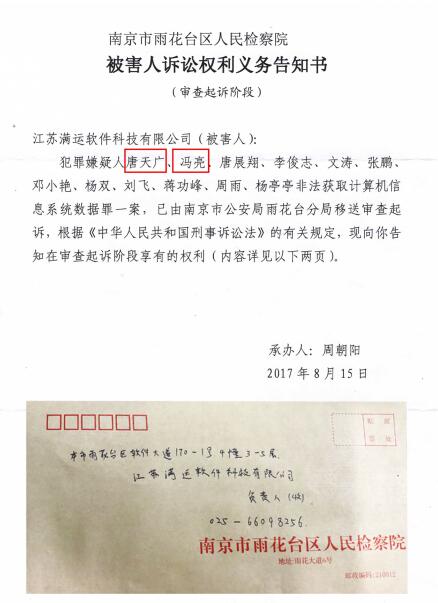 南京市雨花台区人民检察院
被害人诉讼权利义务告知书
（审查起诉阶段）
江苏满运软件科技有限公司（被害人）：
犯罪嫌疑人唐天广、冯亮、唐展翔、李俊志、文涛、张鹏、
邓小艳、杨双、刘飞、蒋功峰、周雨、杨亭亭非法获取计算机信
息系统数据罪一案，已由南京市公安局雨花台分局移送审查起
诉，根据《中华人民共和国刑事诉讼法》的有关规定，现向你告
知在审查起诉阶段享有的权利（内容详见以下两页）。
承办人：周朝阳
2017年8月15日
贴邮
票处
本市雨花台区软件大道170-1号4幢3-5层
江苏满运软件科技有限公司
负责人（收）
025-66098256
南京市雨花台区人民检察院
地址：雨花大道6号
邮政编码：210012